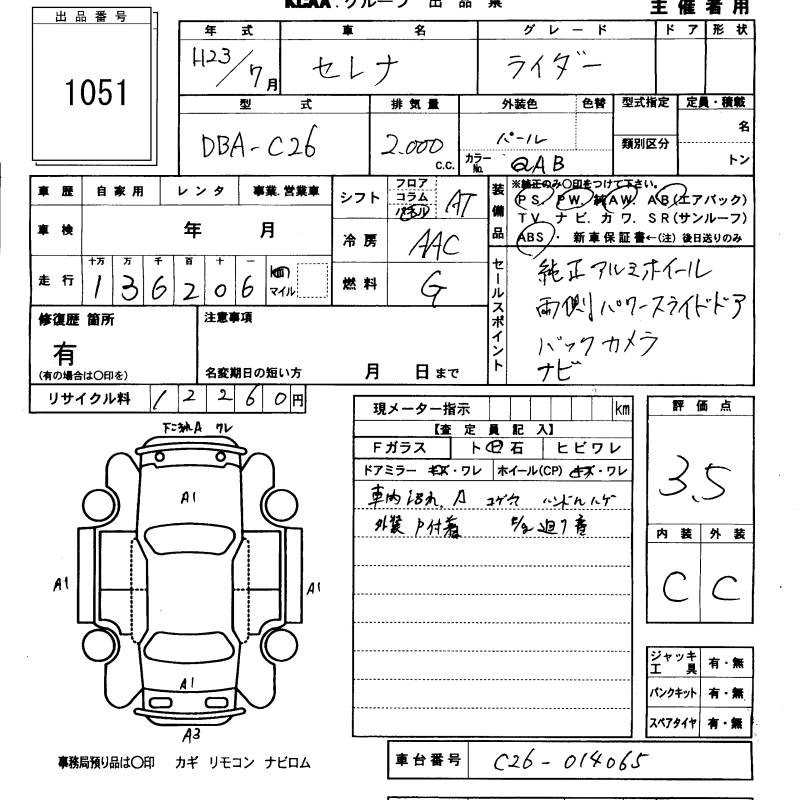 KCAA.グループ 出品票
主催者用
出品番号
1051
年式 車名 グレード ドア 形状
H23/7月 セレナ ライダー
型式 排気量 外装色 色替 型式指定 定員・積載
DBA-C26 2.000 c.c. パール 類別区分 名
カラーNo. QAB トン
車歴 自家用 レンタ 事業.営業車
車検 年 月
シフト フロア コラム パネル AT
冷房 AAC
燃料 G
走行 十万 万 千 百 十 一
136206 km マイル
装備品 ※純正のみ○印をつけて下さい。
PS. PW. 純AW. AB(エアバック)
TV ナビ. カワ. SR(サンルーフ)
ABS ・ 新車保証書←(注)後日送りのみ
セールスポイント
純正アルミホイール
両側パワースライドドア
バックカメラ
ナビ
修復歴 箇所
有
(有の場合は○印を)
注意事項
名変期日の短い方 月 日まで
リサイクル料 12260円
現メーター指示 km
【査定員記入】
Fガラス ト 石 ヒビワレ
ドアミラー キズ・ワレ ホイール(CP) キズ・ワレ
車内 ヨゴレ. A コゲ穴 ハンドルハゲ
外装 P付着
評価点
3.5
内装 外装
C C
ジャッキ工具 有・無
パンクキット 有・無
スペアタイヤ 有・無
下ニヨレA ワレ
A1
A1
A1
A1
A3
事務局預り品は○印 カギ リモコン ナビロム
車台番号 C26-014065